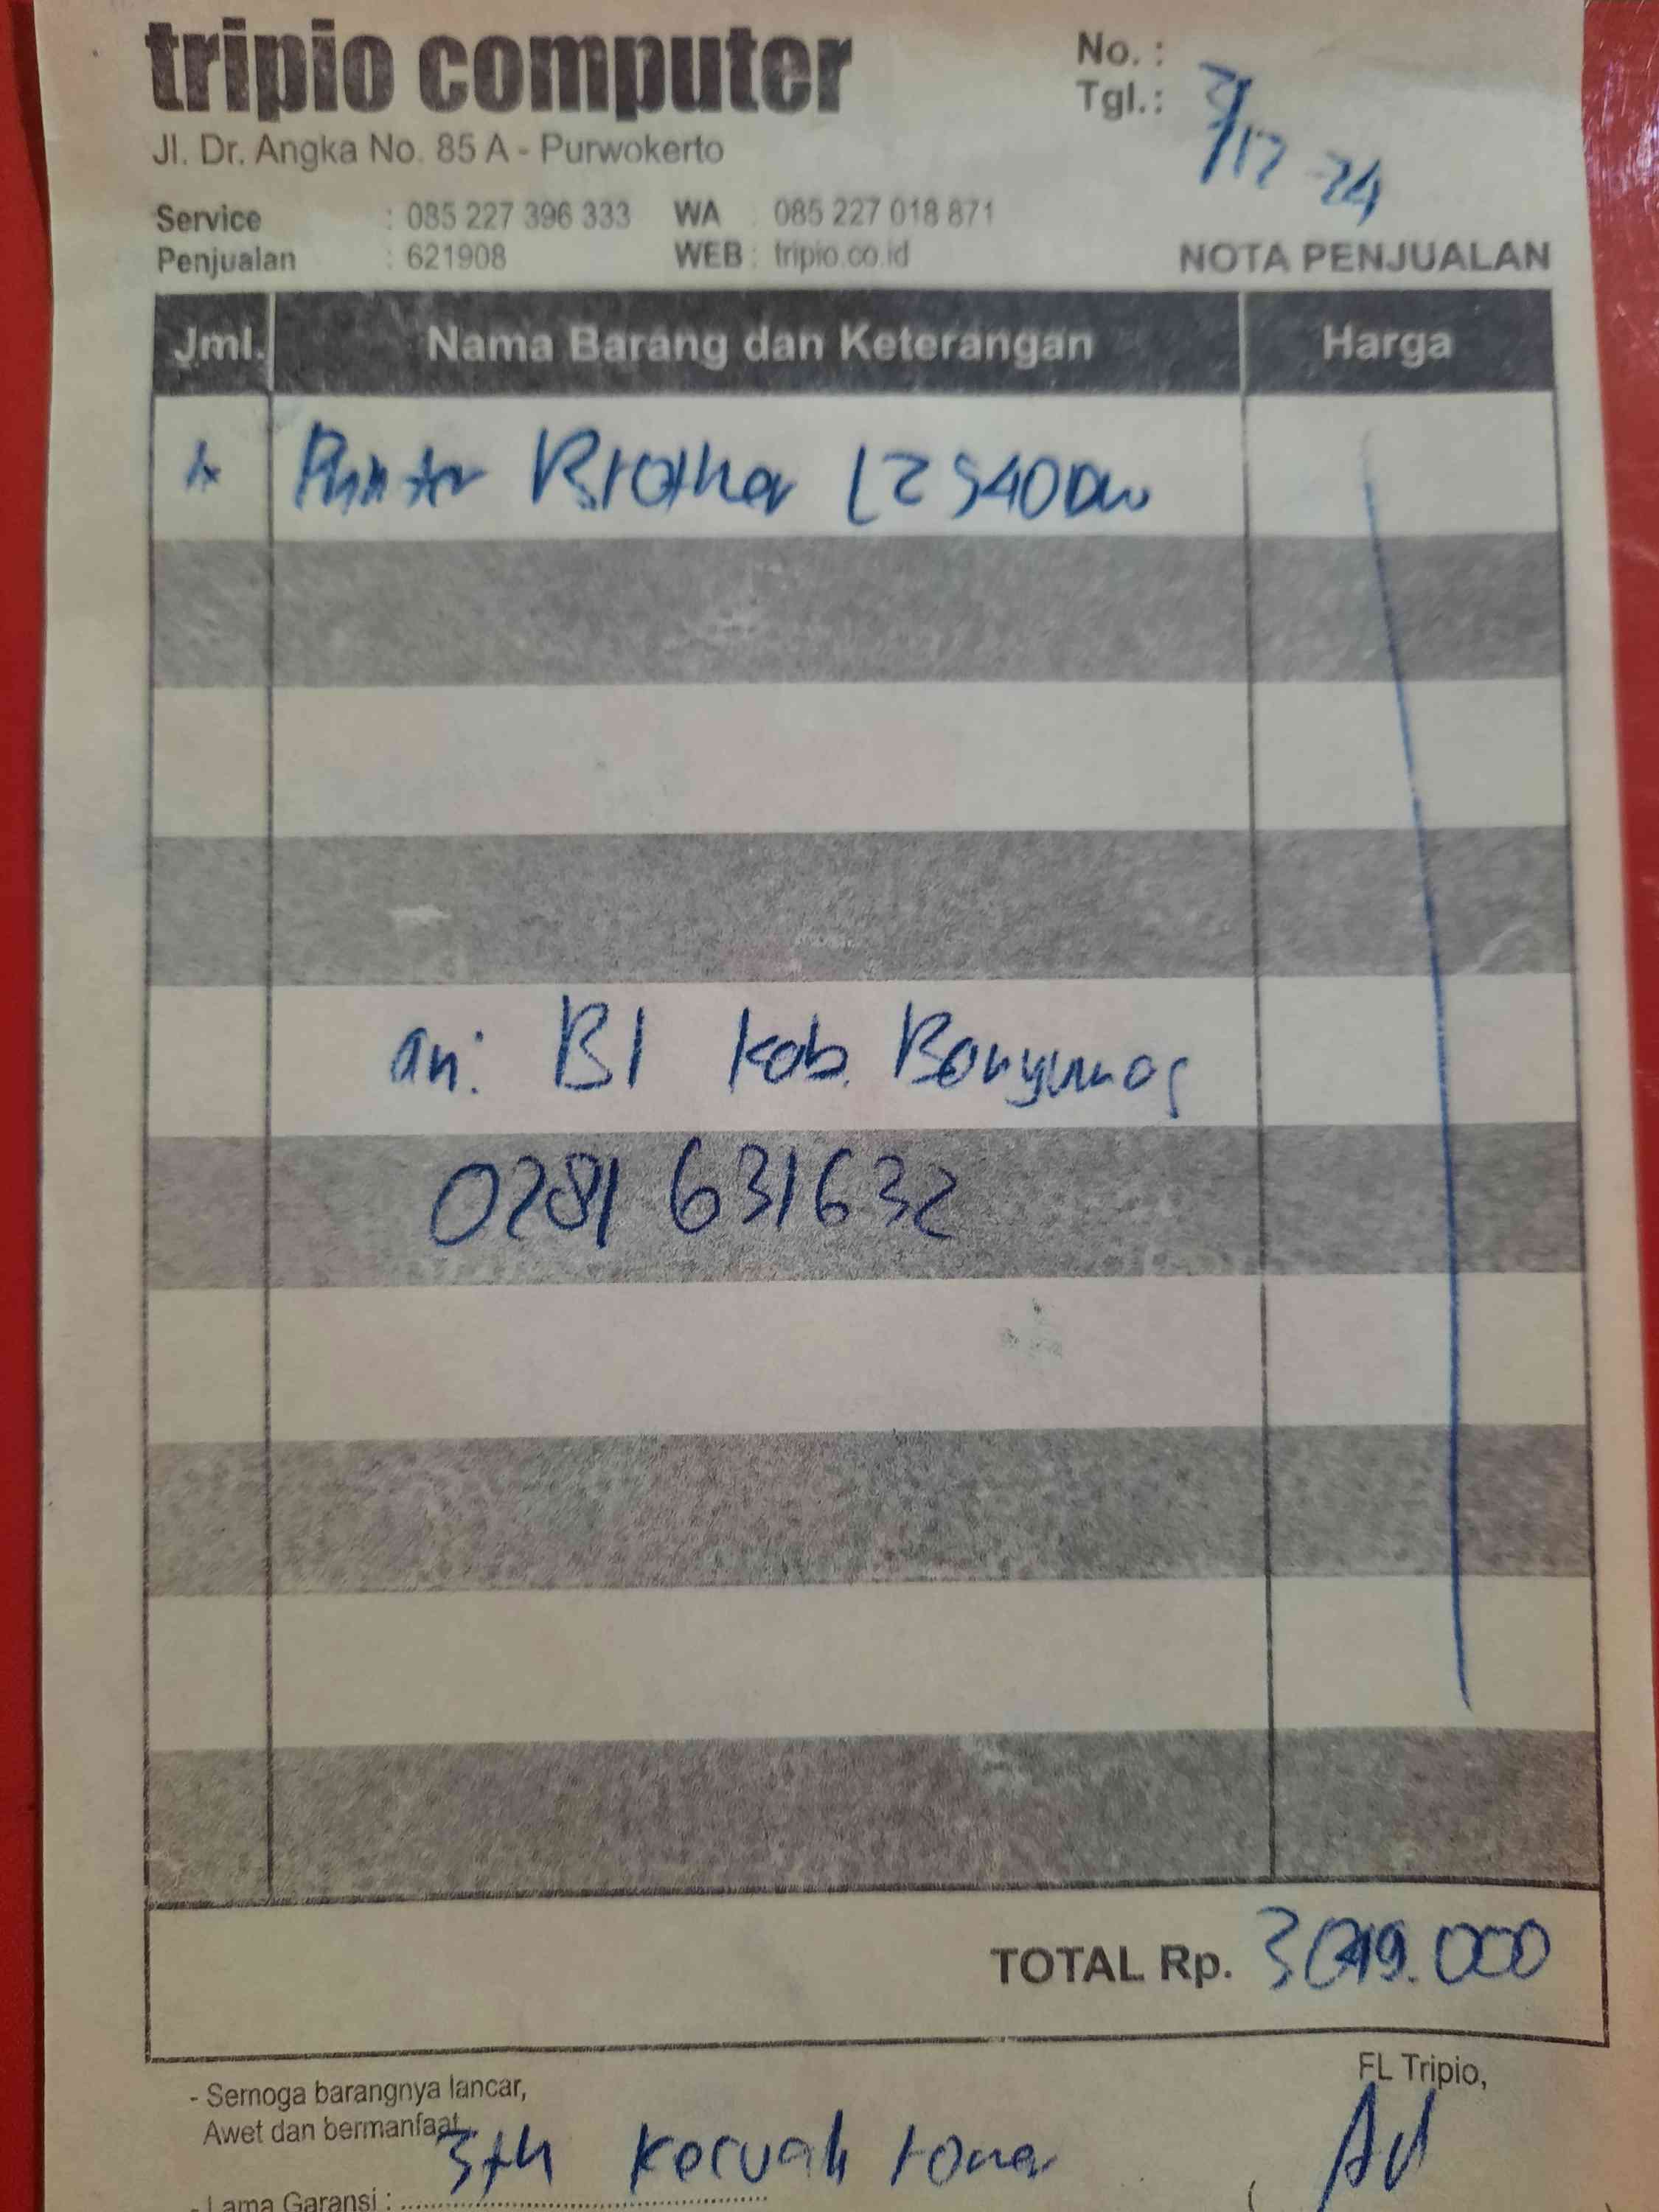 tripio computer
No. :
Tgl.: 3/12 -24
Jl. Dr. Angka No. 85 A - Purwokerto
Service : 085 227 396 333 WA 085 227 018 871
Penjualan : 621908 WEB : tripio.co.id
NOTA PENJUALAN
Jml. Nama Barang dan Keterangan Harga
1x Printer Brother L2540DW
an: BI Kab. Banyumas
0281 631632
TOTAL Rp. .000
- Semoga barangnya lancar,
FL Tripio,
Awet dan bermanfaat
3th kecuali toner
- Lama Garansi :